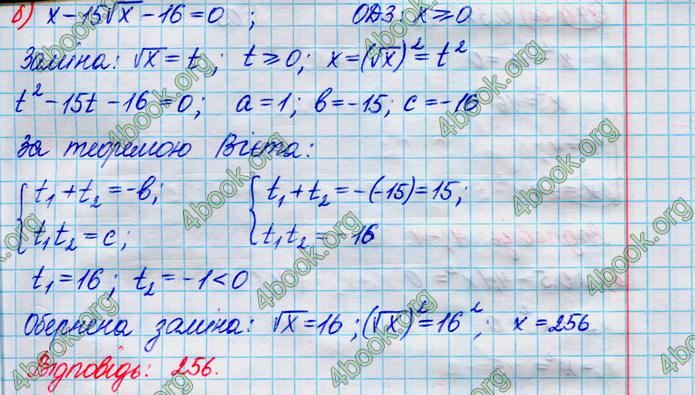 б) x-15√x-16=0 ; ОДЗ: x⩾0
Заміна: √x=t; t⩾0; x=(√x)²=t²
t²-15t-16=0; a=1; b=-15; c=-16
За теоремою Вієта:
{t₁+t₂=-b; {t₁+t₂=-(-15)=15;
t₁t₂=c; t₁t₂=-16
t₁=16; t₂=-1<0
Обернена заміна: √x=16; (√x)²=16²; x=256
Відповідь: 256.
4book.org
4book.org
4book.org
4book.org
4book.org
4book.org
4book.org
4book.org
4book.org